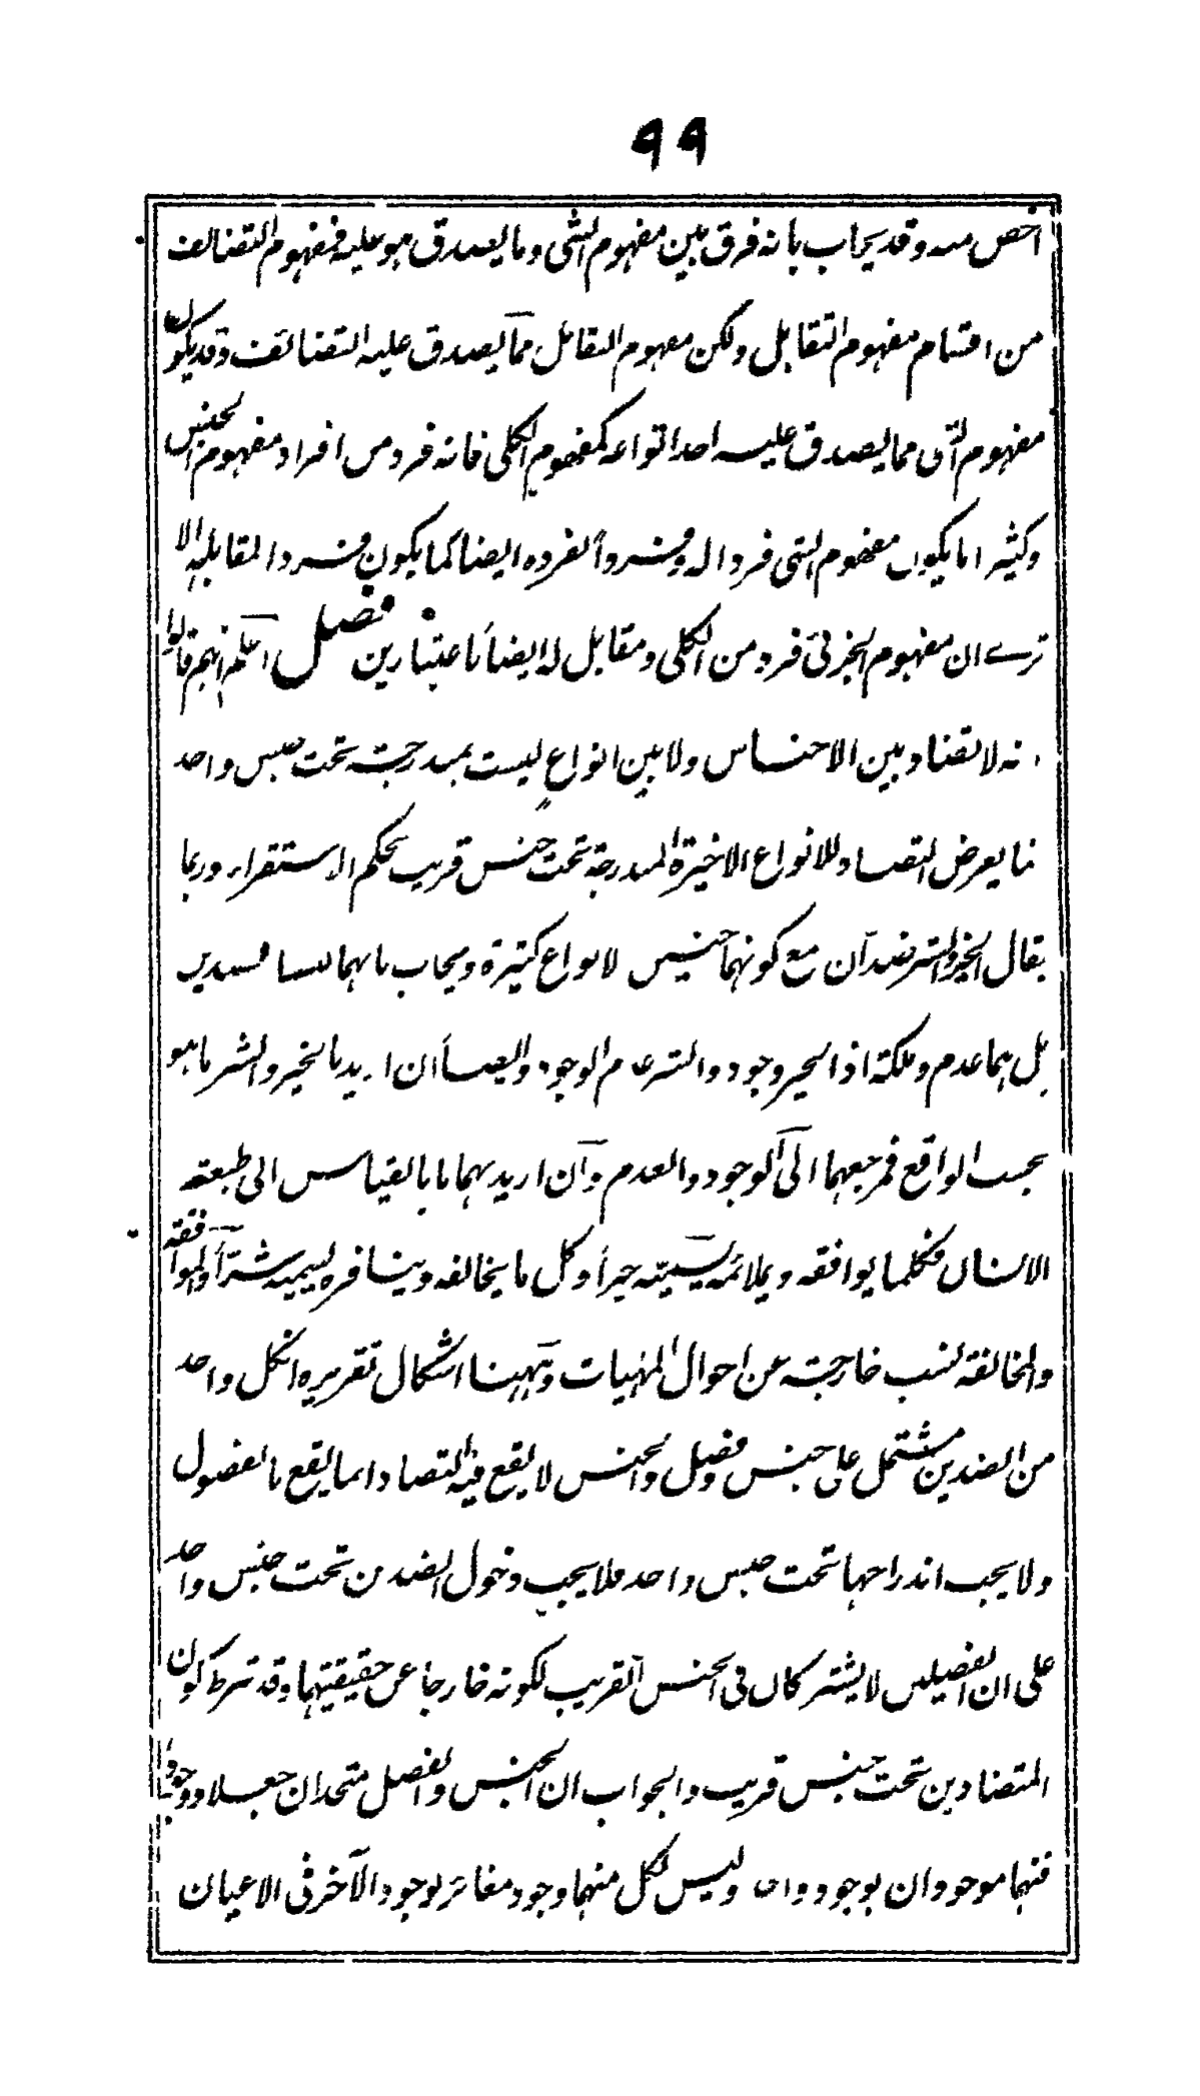 ۹۹
اخص منه وقد يجاب بانه فرق بين مفهوم الشي وما يصدق هو عليه فمفهوم التضائف
من اقسام مفهوم التقابل ولكن مفهوم التقابل مما يصدق عليه التضائف وقد يكون
مفهوم الشي مما يصدق عليه احد انواعه كمفهوم الكلي فانه فرد من افراد مفهوم الجنس
وكثيرا ما يكون مفهوم الشي فردا له وفردا لفرده ايضا كما يكون فردا لمقابله الا
ترے ان مفهوم الجزئي فرد من الكلي ومقابل له ايضا باعتبارين فصل اعلم انهم قالوا
انه لا تضاد بين الاجناس ولا بين انواع ليست بمندرجة تحت جنس واحد
انما يعرض التضاد للانواع الاخيرة المندرجة تحت جنس قريب بحكم الاستقراء وربما
يقال الخير والشر ضدان مع كونهما جنسين لانواع كثيرة ويجاب بانهما ليسا ضدين
بل هما عدم وملكة اذ الخير وجود والشر عدم الوجود وايضا ان اريد بالخير والشر ما هو
بحسب الواقع فمرجعهما الى الوجود والعدم وان اريد بهما ما بالقياس الى طبيعة
الانسان فكلما يوافقه ويلائمه يسميه خيرا وكل ما يخالفه وينافره يسميه شرا والموافقة
والمخالفة نسب خارجة عن احوال المهيات وههنا اشكال تقريره ان كل واحد
من الضدين مشتمل على جنس وفصل والجنس لا يقع فيه التضاد انما يقع بالفصول
ولا يجب اندراجها تحت جنس واحد فلا يجب دخول الضدين تحت جنس واحد
على ان الفصيلين لا يشتركان في الجنس القريب لكونه خارجا عن حقيقتيهما وقد شرط كون
المتضادين تحت جنس قريب والجواب ان الجنس والفصل متحدان جعلا ووجودا
فهما موجودان بوجود واحد وليس لكل منهما وجود مغائر لوجود الآخر في الاعيان